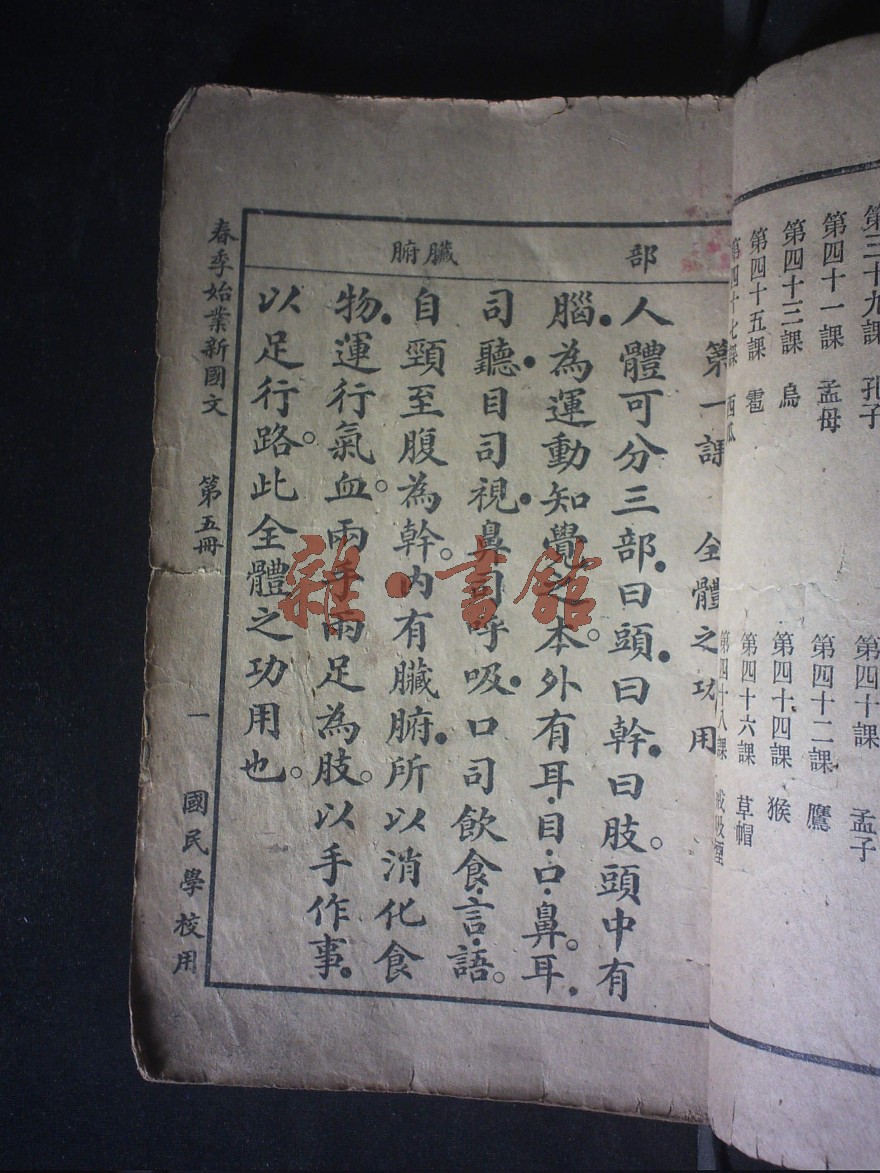 第三十九課 孔子
第四十課 孟子
第四十一課 孟母
第四十二課 鷹
第四十三課 烏
第四十四課 猴
第四十五課 雹
第四十六課 草帽
第四十七課 西瓜
第四十八課
部
臟腑
第一課 全體之功用
人體可分三部.曰頭.曰幹.曰肢。頭中有
腦.為運動知覺之本。外有耳.目.口.鼻。耳.
司聽.目司視.鼻司呼吸.口司飲食.言.語。
自頸至腹為幹。內有臟腑.所以消化食
物.運行氣血。兩手兩足為肢。以手作事.
以足行路。此全體之功用也。
春季始業新國文 第五冊 一 國民學校用
雜·書館